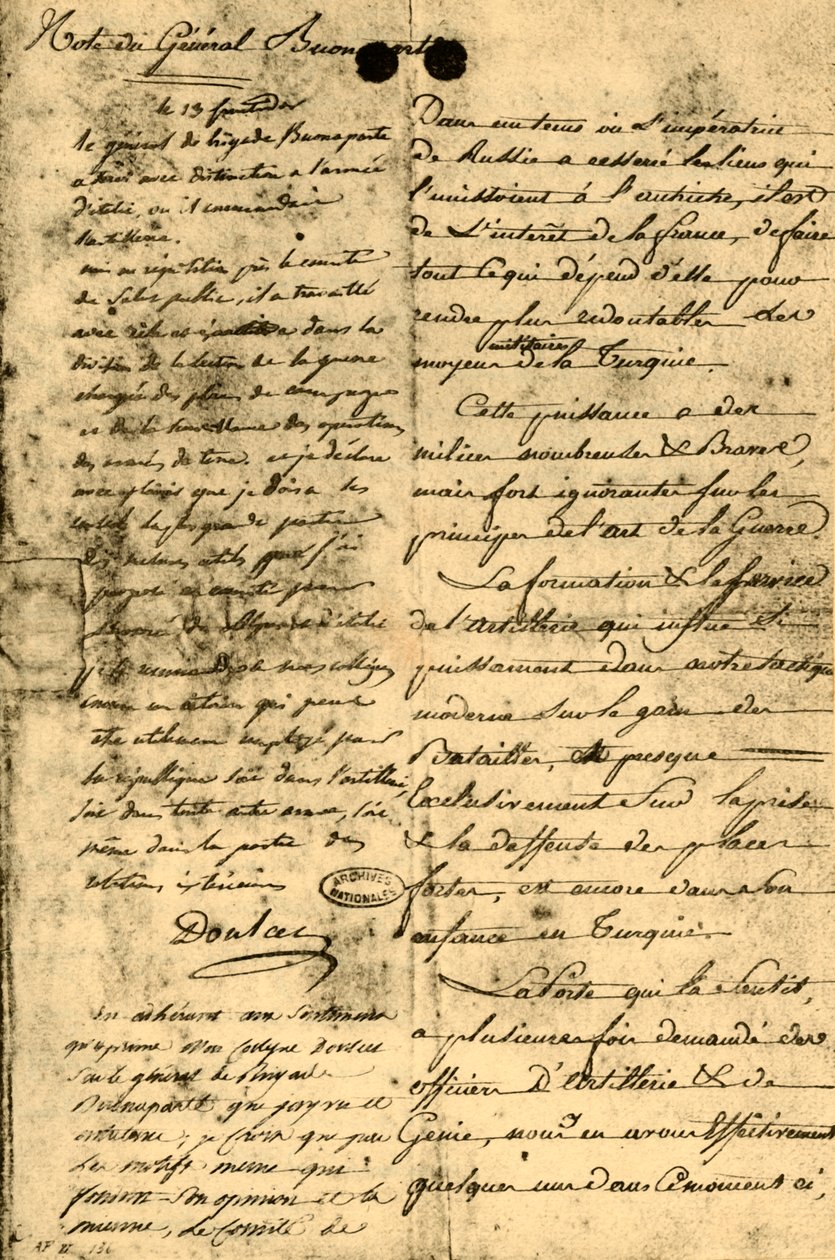 Note du Général Buonaparte
le 13 fructidor
le général de brigade Buonaparte
a servi avec distinction a l'armée
d'italie, ou il commandait
l'artillerie.
mis en réquisition près le comité
de Salut public, il a travaillé
avec zele et exactitude dans la
division de la section de la guerre
chargée des plans de campagne
et de la surveillance des operations
des armées de terre. et je déclare
avec plaisir que je dois a ses
conseils la plus grande partie
des mesures utiles que j'ai
proposé au comité pour
l'armée des alpes et d'italie
je le recommande a mes collegues
comme un citoien qui peut
etre utilement employé pour
la république soit dans l'artillerie,
soit dans toute autre arme, soit
même dans la partie des
relations exterieures
Doulcet
En adhérant aux Sentimens
qu'exprime mon Collegue Doulcet
Sur le général de Brigade
Buonaparte que j'ay vu et
entretenu, je Crois que par
les motifs meme qui
fondent Son opinion et la
mienne, Le Comité de
Dans un tems où L'impératrice
de Russie a resserré les liens qui
l'unissoient à l'autriche, il est
de L'interêt de la france, de faire
tout ce qui dépend d'elle pour
rendre plus redoutables les
moyens militaires de la Turquie.
Cette puissance a des
milices nombreuses & Braves,
mais fort ignorantes sur les
principes de l'art de la Guerre.
La formation & le service
de l'artillerie qui influe si
puissament dans notre tactique
moderne sur le gain des
Batailles, & presque
Exclusivement sur la prise
& la deffense des places
fortes, est encore dans son
enfance en Turquie.
La Porte qui la Sentit,
a plusieurs fois demandé des
officiers D'artillerie & de
Genie, nous y en avons Effectivement
quelques uns dans ce moment ci,
ARCHIVES
NATIONALES
AF II